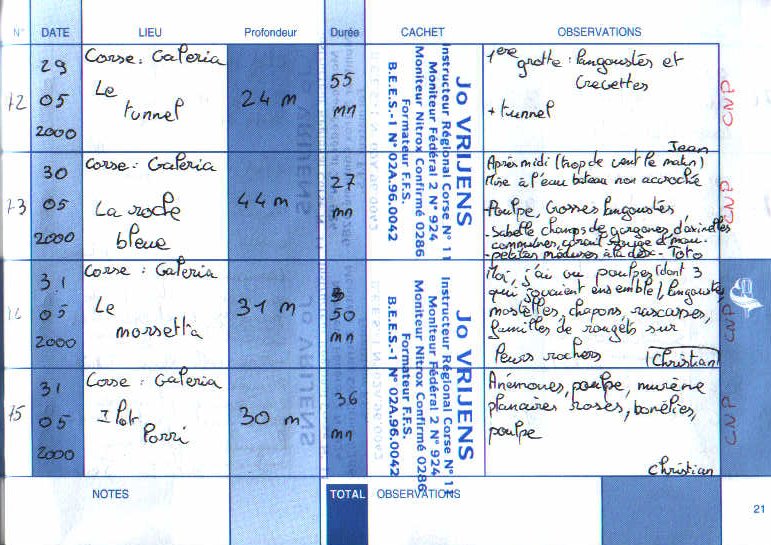 N° DATE LIEU Profondeur Durée CACHET OBSERVATIONS
72
29
05
2000
Corse : Galeria
Le
tunnel
24 m
55
mn
1ère
grotte : langoustes et
crevettes
+ tunnel
Jean
CNP
73
30
05
2000
Corse : Galeria
La roche
bleue
44 m
27
mn
Après midi (trop de vent le matin)
Mise à l'eau bateau non accroché
- Poulpe, Grosses langoustes,
- Sabelle champs de gorgones d'axinelles
communes, corail rouge
- petites méduses à la desc - Toto
CNP
Jo VRIJENS
Instructeur Régional Corse N° 11
Moniteur Fédéral 2 N° 924
Moniteur Nitrox Confirmé 0286
Formateur F.F.S.
B.E.E.S.-1 N° 02A.96.0042
31
05
2000
Corse : Galeria
Le
morsetta
31 m
50
mn
Moi, j'ai vu poulpes (dont 3
qui jouaient ensemble), langoustes,
mostelles, chapons, rascasses,
familles de rougets sur
leurs rochers
Christian
CNP
75
31
05
2000
Corse : Galeria
Porri
30 m
36
mn
Anémones, poulpe, murène
planaires roses, bonélies,
poulpe
Christian
CNP
Jo VRIJENS
Instructeur Régional Corse N° 11
Moniteur Fédéral 2 N° 924
Moniteur Nitrox Confirmé 0286
Formateur F.F.S.
B.E.E.S.-1 N° 02A.96.0042
NOTES TOTAL OBSERVATIONS
21